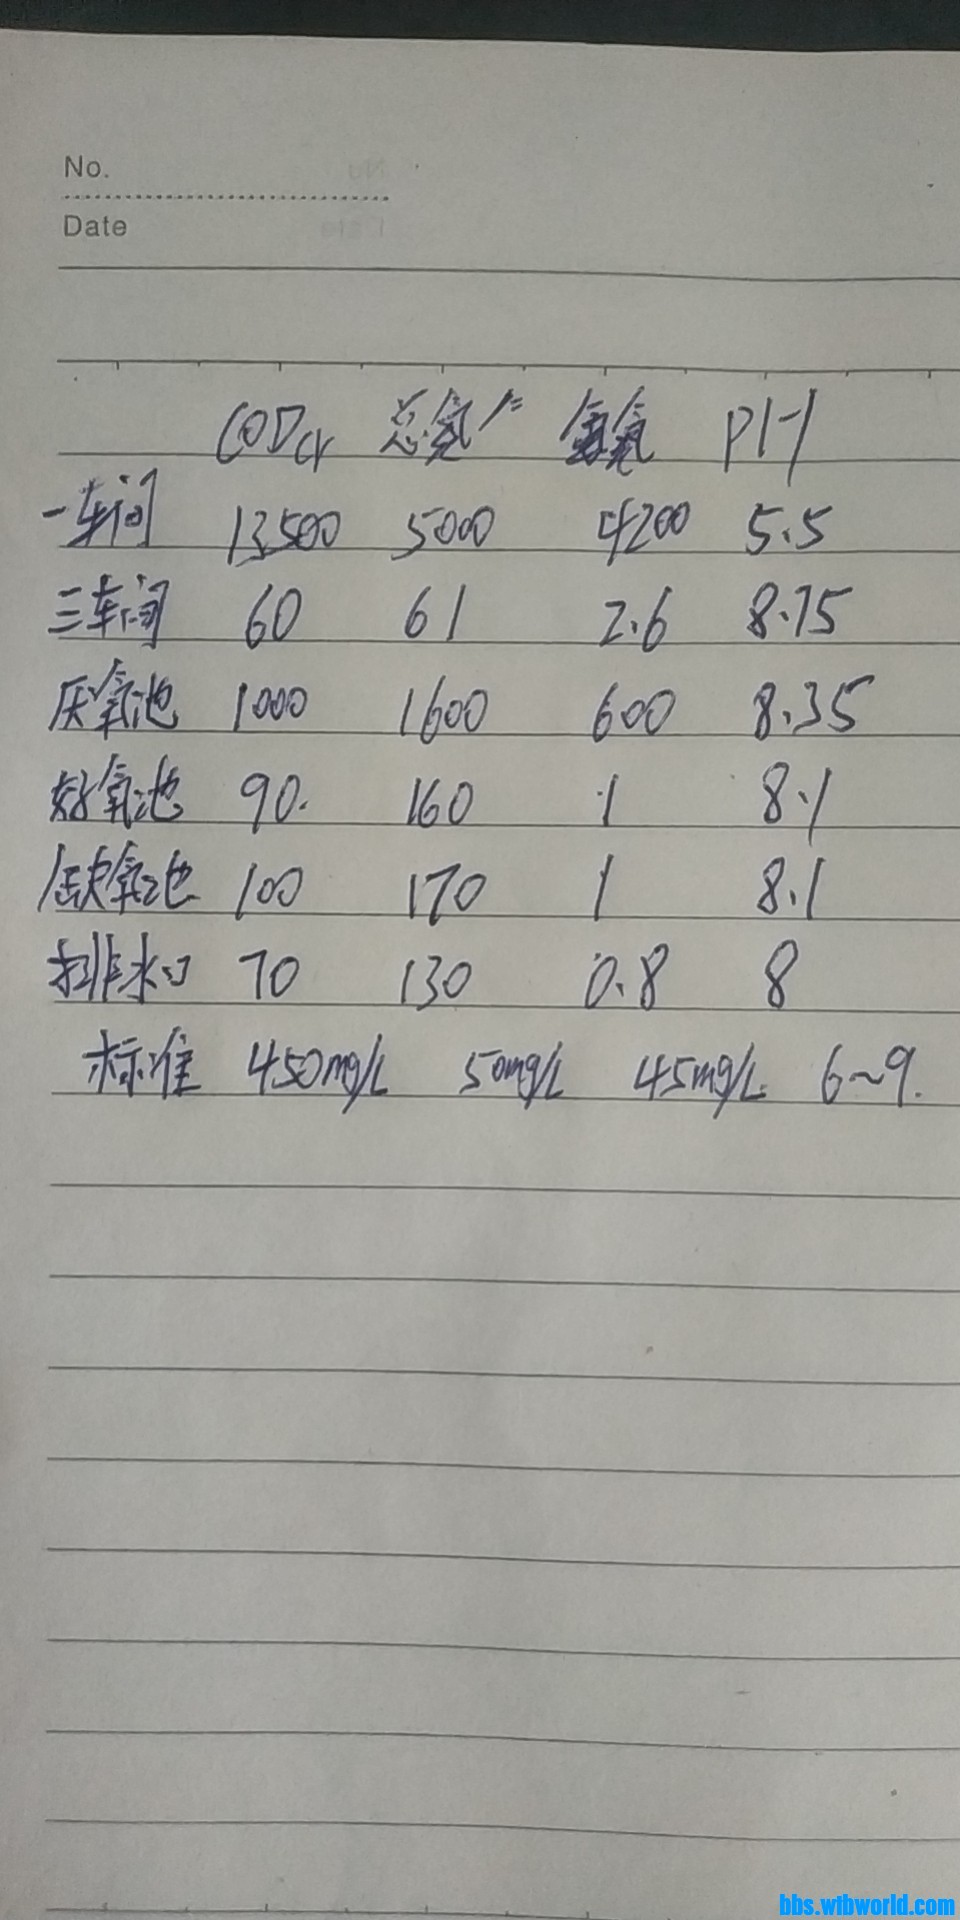 No.
Date
CODcr 总氮 氨氮 PH
一车间 13500 5000 4200 5.5
三车间 60 61 2.6 8.75
厌氧池 1000 1600 600 8.35
好氧池 90. 160 1 8.1
缺氧池 100 170 1 8.1
排水口 70 130 0.8 8
标准 450mg/L 50mg/L 45mg/L 6~9.
bbs.wibworld.com